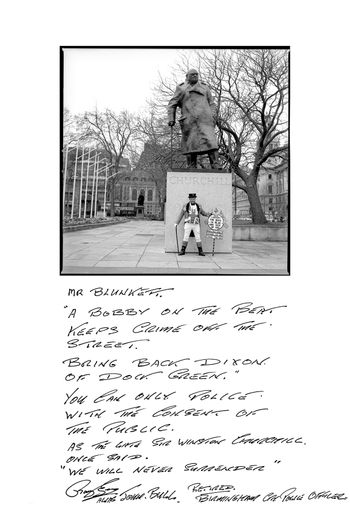 CHURCHILL
MR BLUNKETT.
"A BOBBY ON THE BEAT
KEEPS CRIME OFF THE
STREET.
BRING BACK DIXON
OF DOCK GREEN."
YOU CAN ONLY POLICE
WITH THE CONSENT OF
THE PUBLIC.
AS THE LATE SIR WINSTON CHURCHILL.
ONCE SAID.
"WE WILL NEVER SURRENDER"
ALIAS JOHN BULL. RETIRED.
BIRMINGHAM CITY POLICE OFFICER